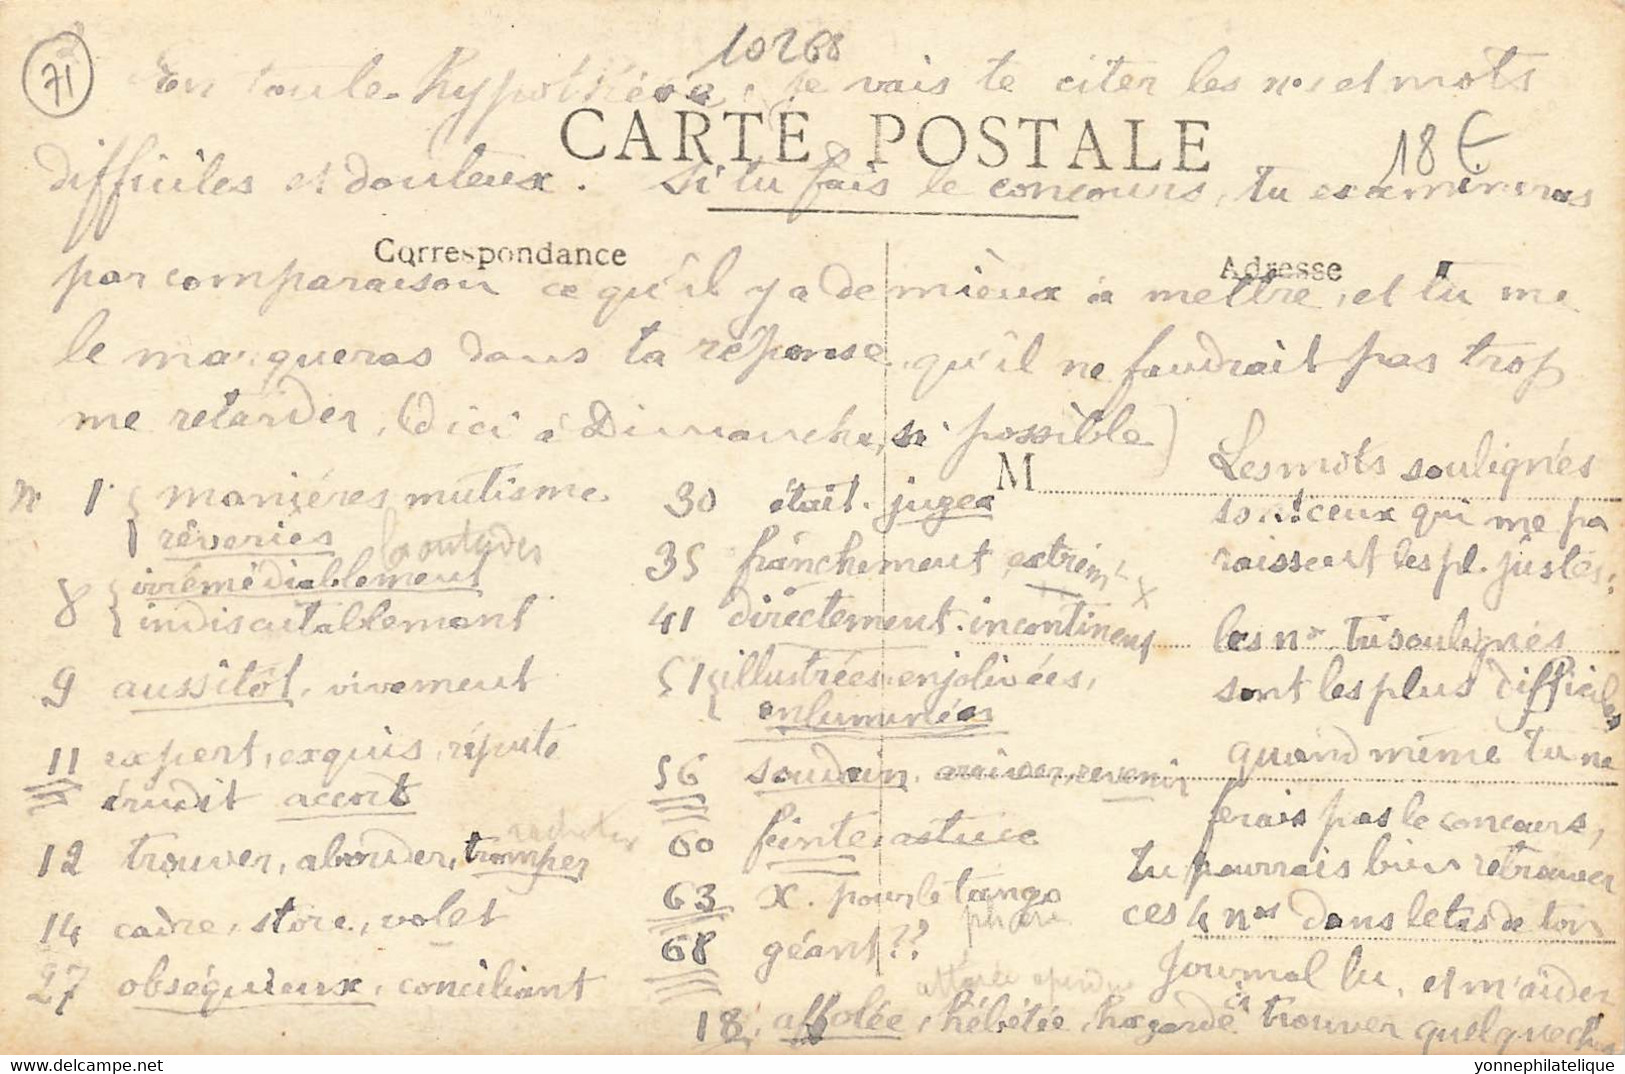 71
10268
En toute hypothèse, je vais te citer les nos et mots
CARTE POSTALE
18 €
difficiles et douteux. Si tu fais le concours, tu examineras
Correspondance
Adresse
par comparaison ce qu'il y a de mieux à mettre, et tu me
le marqueras dans ta réponse, qu'il ne faudrait pas trop
me retarder, (d'ici à Dimanche, si possible)
n. 1 manières mutisme
rêveries boutades
8 irrémédiablement
indiscutablement
9 aussitôt, vivement
11 expert, exquis, réputé
érudit accort
12 trouver, aborder, tromper
14 cadre, store, volet
27 obséquieux, conciliant
30 était. juger
35 franchement, extrêm
41 directement. incontinent
51 illustrées. enjolivées,
enluminées
56 soudain. arriver, revenir
60 feinte, astuce
63 x. pour le tango
phare
68 géant??
18. affolée, hébétée, hagarde
M
Les mots soulignés
sont ceux qui me pa
raissent les pl. justes;
les nos trisoulignés
sont les plus difficiles
quand même tu ne
ferais pas le concours,
tu pourrais bien retrouver
ces 4 nos dans le tas de ton
Journal lu, et m'aider
à trouver quelque chs
www.delcampe.net
yonnephilatelique